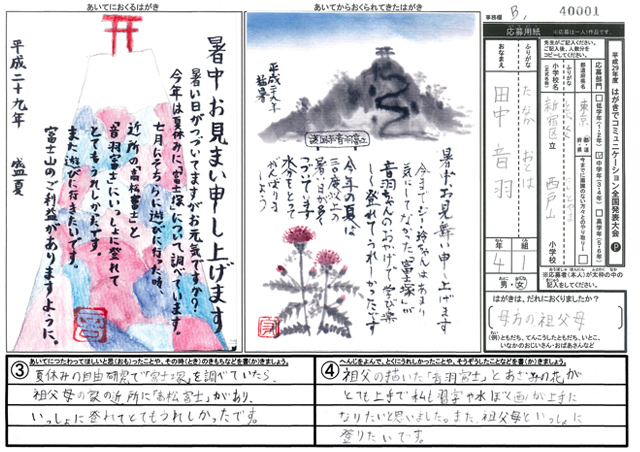 あいてにおくるはがき
暑中お見まい申し上げます
暑い日がつづいてますがお元気ですか?
今年は夏休みに「富士塚」について調べています。
七月にそちらに遊びに行った時、
近所の「高松富士」と
「音羽富士」にいっしょに登れて
とてもうれしかったです。
また遊びに行きたいです。
富士山のご利益がありますように。
平成二十九年 盛夏
音羽
あいてからおくられてきたはがき
平成二十九年
猛暑
護国寺音羽富士
暑中お見舞い申し上げます
今までジージ、玲ちゃんはあまり
気にしてなかった「富士塚」が
音羽ちゃんのおかげで学び楽
しく登れてうれしかったです
今年の夏は
暑い日が多く
三〇度以上が
つづいてます
水分をとって
がんばりま
しょう
事務欄
B,
40001
応募用紙
※応募は一人1作品です。
平成29年度 はがきでコミュニケーション全国発表大会
応募部門
低学年(1・2年)
中学年(3・4年)
高学年(5・6年)
都道府県名
東京
小学校名
新宿区立 西戸山
小学校
ふりがな
たなか おとは
おなまえ
田中 音羽
年
組
4
1
男・女
はがきは、だれにおくりましたか?
母方の祖父母
(例)ともだち、てんこうしたともだち、いとこ、
いなかのおじいさん・おばあさんなど
③ あいてにつたわってほしいと思(おも)ったことや、その時(とき)のきもちなどを書(か)きましょう。
夏休みの自由研究で「富士塚」を調べていたら、
祖父母の家の近所に「高松富士」があり、
いっしょに登れてとてもうれしかったです。
④ へんじをよんで、とくにうれしかったことや、そうぞうしたことなどを書(か)きましょう。
祖父の描いた「音羽富士」とあざみの花が
とても上手で私も習字や水ぼく画が上手に
なりたいと思いました。また、祖父母といっしょに
登りたいです。